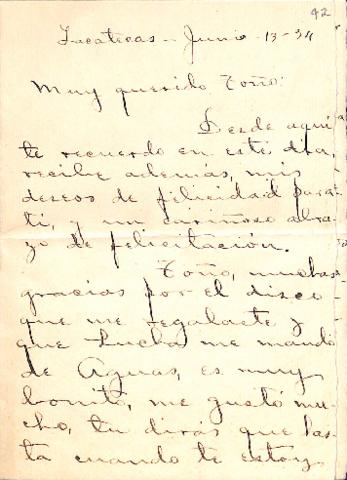 42
Zacatecas - Junio - 13 - 34
Muy querido Toño:
Desde aquí
te recuerdo en este día,
recibe además, mis
deseos de felicidad para
ti, y un cariñoso abra-
zo de felicitación.
Toño, muchas
gracias por el disco
que me regalaste y
que Lucha me mandó
de Aguas, es muy
bonito, me gustó mu-
cho, tu dirás que has-
ta cuando te estoy